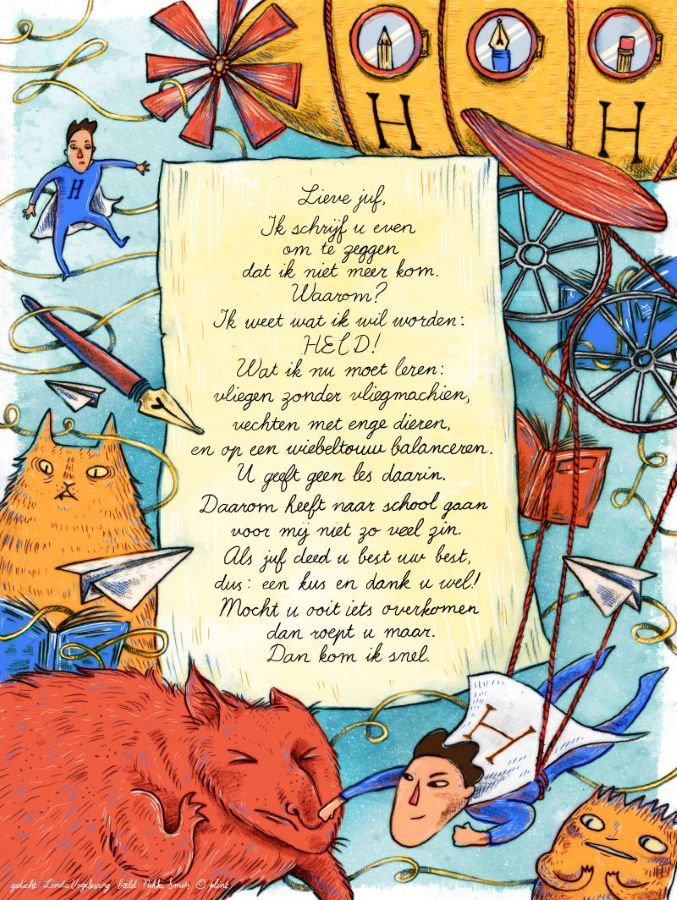 H H
H
Lieve juf,
Ik schrijf u even
om te zeggen
dat ik niet meer kom.
Waarom?
Ik weet wat ik wil worden:
HELD!
Wat ik nu moet leren:
vliegen zonder vliegmachien,
vechten met enge dieren,
en op een wiebeltouw balanceren.
U geeft geen les daarin.
Daarom heeft naar school gaan
voor mij niet zo veel zin.
Als juf deed u best uw best,
dus: een kus en dank u wel!
Mocht u ooit iets overkomen
dan roept u maar.
Dan kom ik snel.
H
gedicht: Linda Vogelesang beeld: Nikki Smits © plint